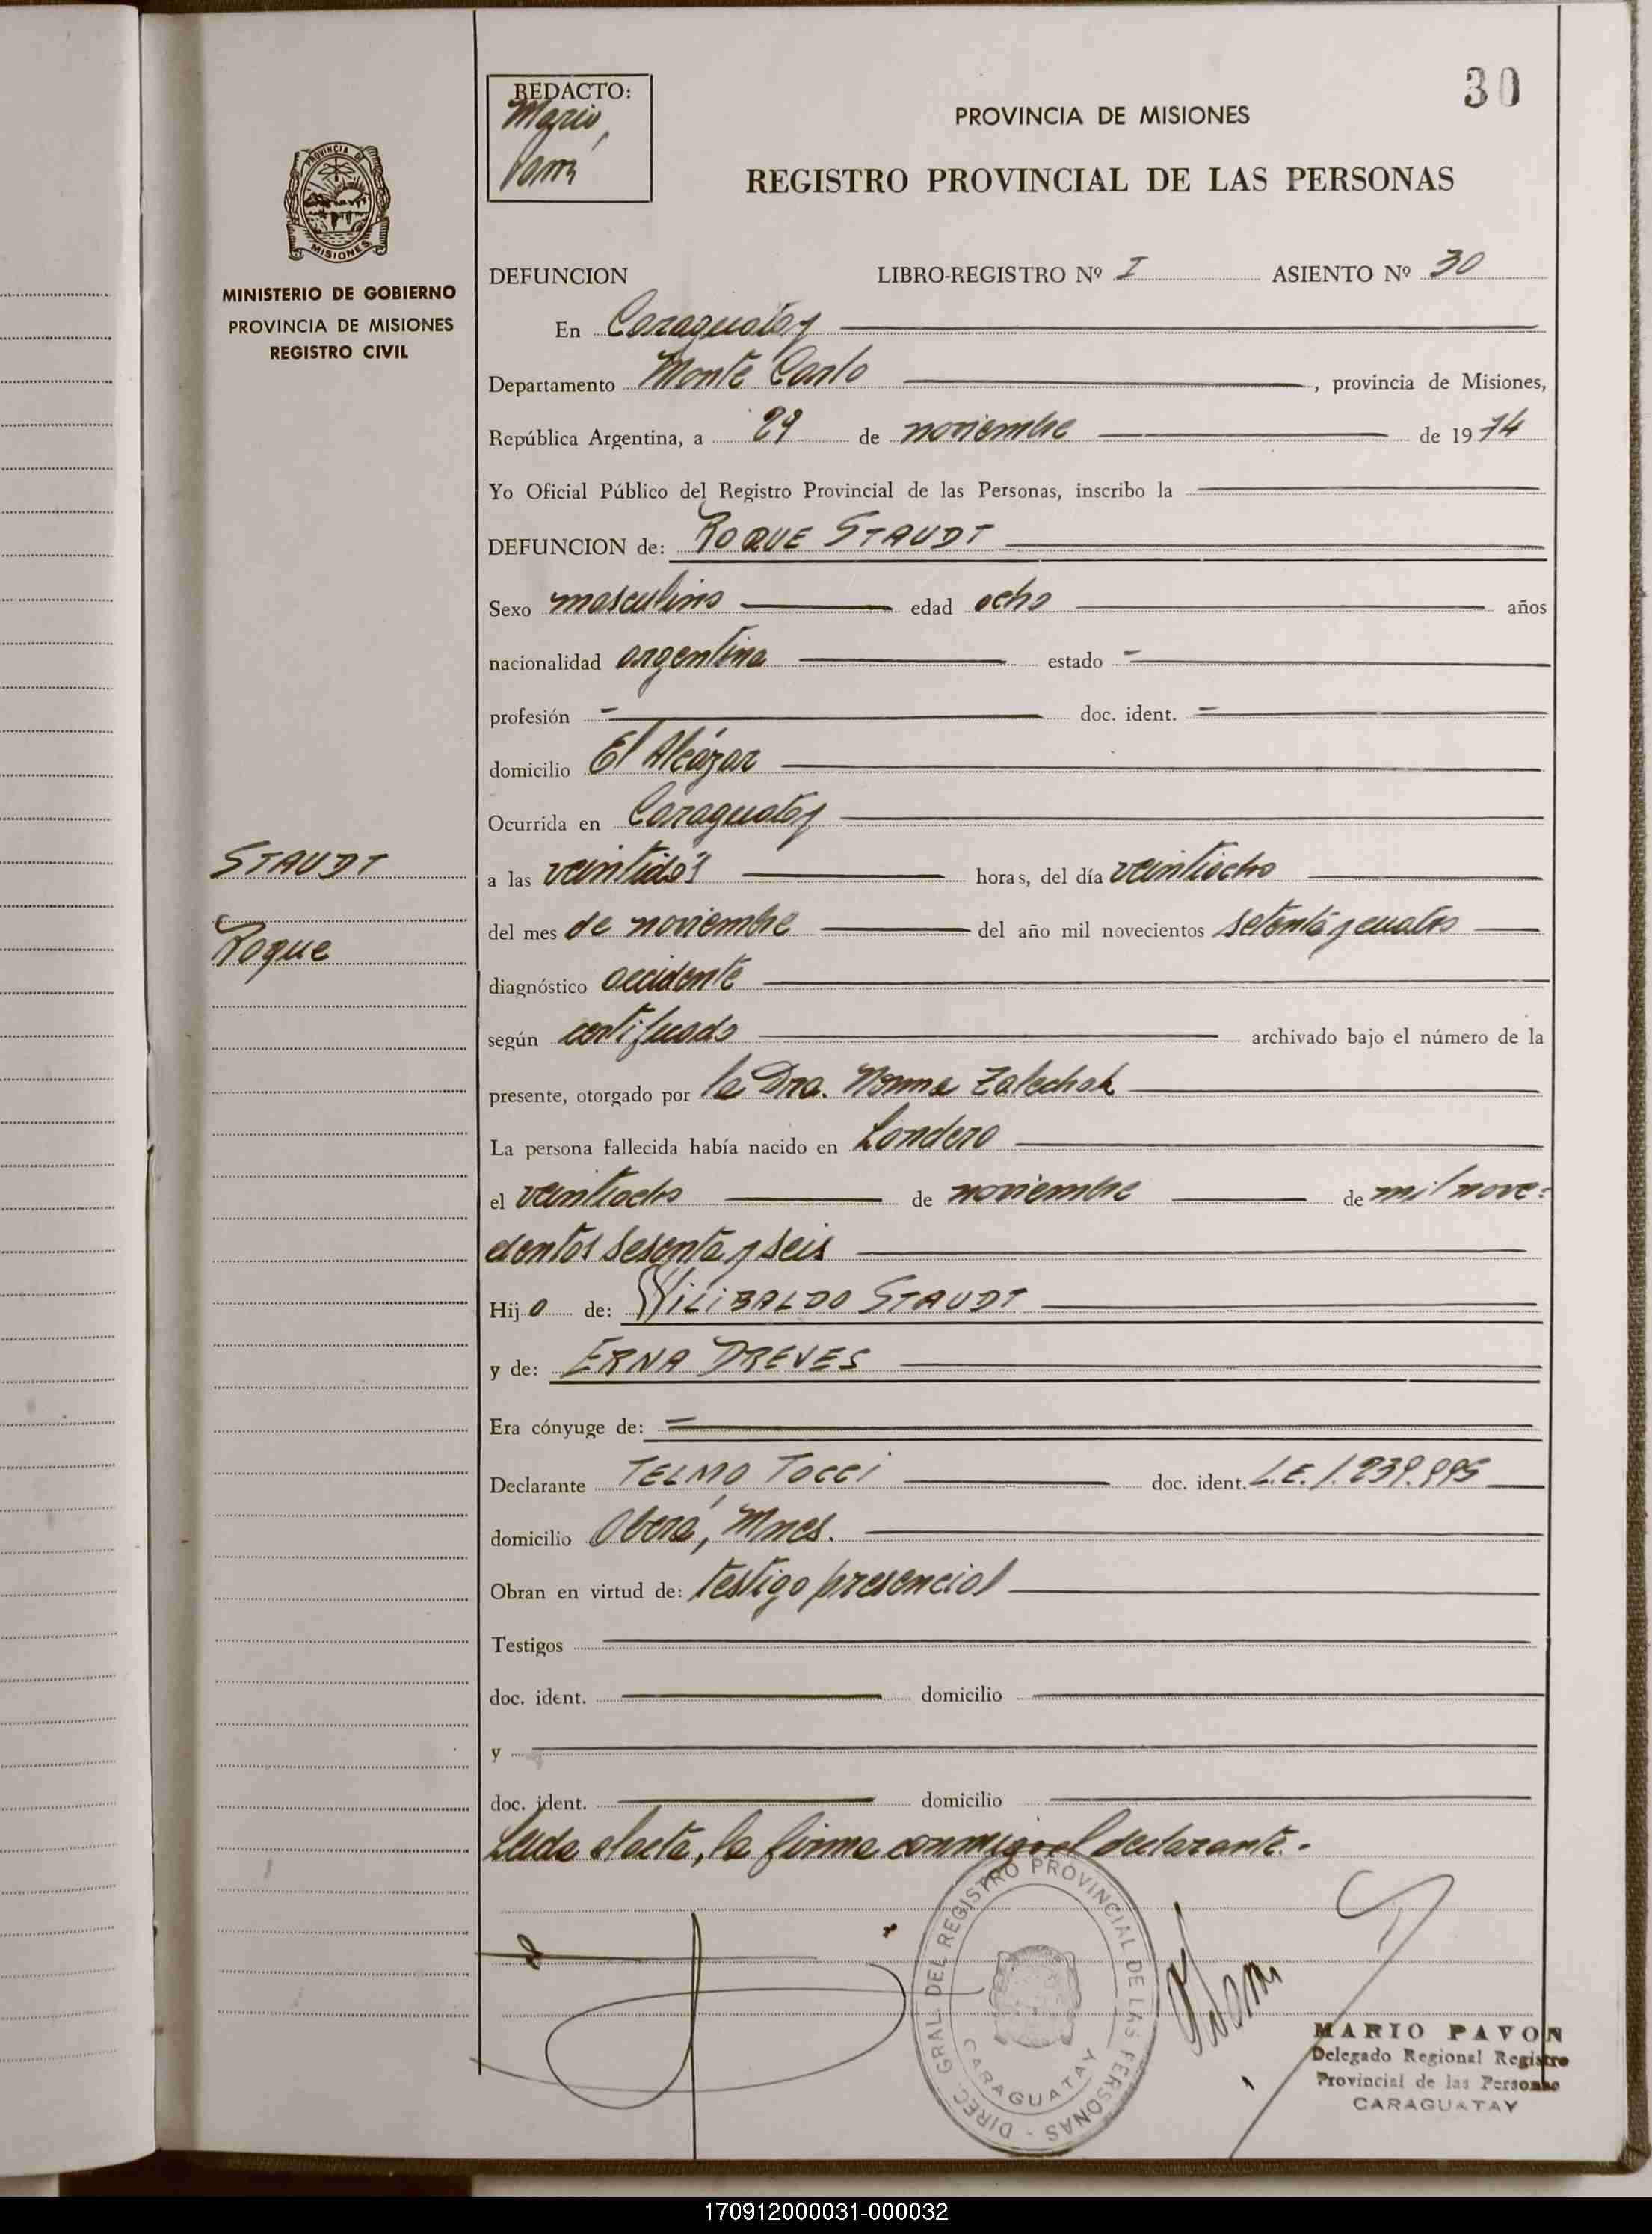 30
REDACTO:
Mario
PROVINCIA DE MISIONES
REGISTRO PROVINCIAL DE LAS PERSONAS
PROVINCIA DE
MISIONES
MINISTERIO DE GOBIERNO
PROVINCIA DE MISIONES
REGISTRO CIVIL
DEFUNCION LIBRO-REGISTRO Nº I ASIENTO Nº 30
En Caraguatay
Departamento Monte Carlo, provincia de Misiones,
República Argentina, a 29 de noviembre de 1974
Yo Oficial Público del Registro Provincial de las Personas, inscribo la
DEFUNCION de: ROQUE STAUDT
Sexo masculino edad ocho años
nacionalidad argentina estado -
profesión - doc. ident. -
domicilio El Alcázar
Ocurrida en Caraguatay
STAUDT
Roque
a las veintidós horas, del día veintiocho
del mes de noviembre del año mil novecientos setenta y cuatro
diagnóstico accidente
según certificado archivado bajo el número de la
presente, otorgado por la Dra. Norma Zalechak
La persona fallecida había nacido en Londero
el veintiocho de noviembre de mil nove-
cientos sesenta y seis
Hijo de: WILIBALDO STAUDT
y de: ERNA DREVES
Era cónyuge de: -
Declarante TELMO TOCCI doc. ident. L.E. 1.239.995
domicilio Oberá, Mnes.
Obran en virtud de: testigo presencial
Testigos
doc. ident. domicilio
y
doc. ident. domicilio
Leída el acta, la firma conmigo el declarante.-
DIREC. GRAL. DEL REGISTRO PROVINCIAL DE LAS PERSONAS -
CARAGUATAY
MARIO PAVON
Delegado Regional Registro
Provincial de las Personas
CARAGUATAY
170912000031-000032